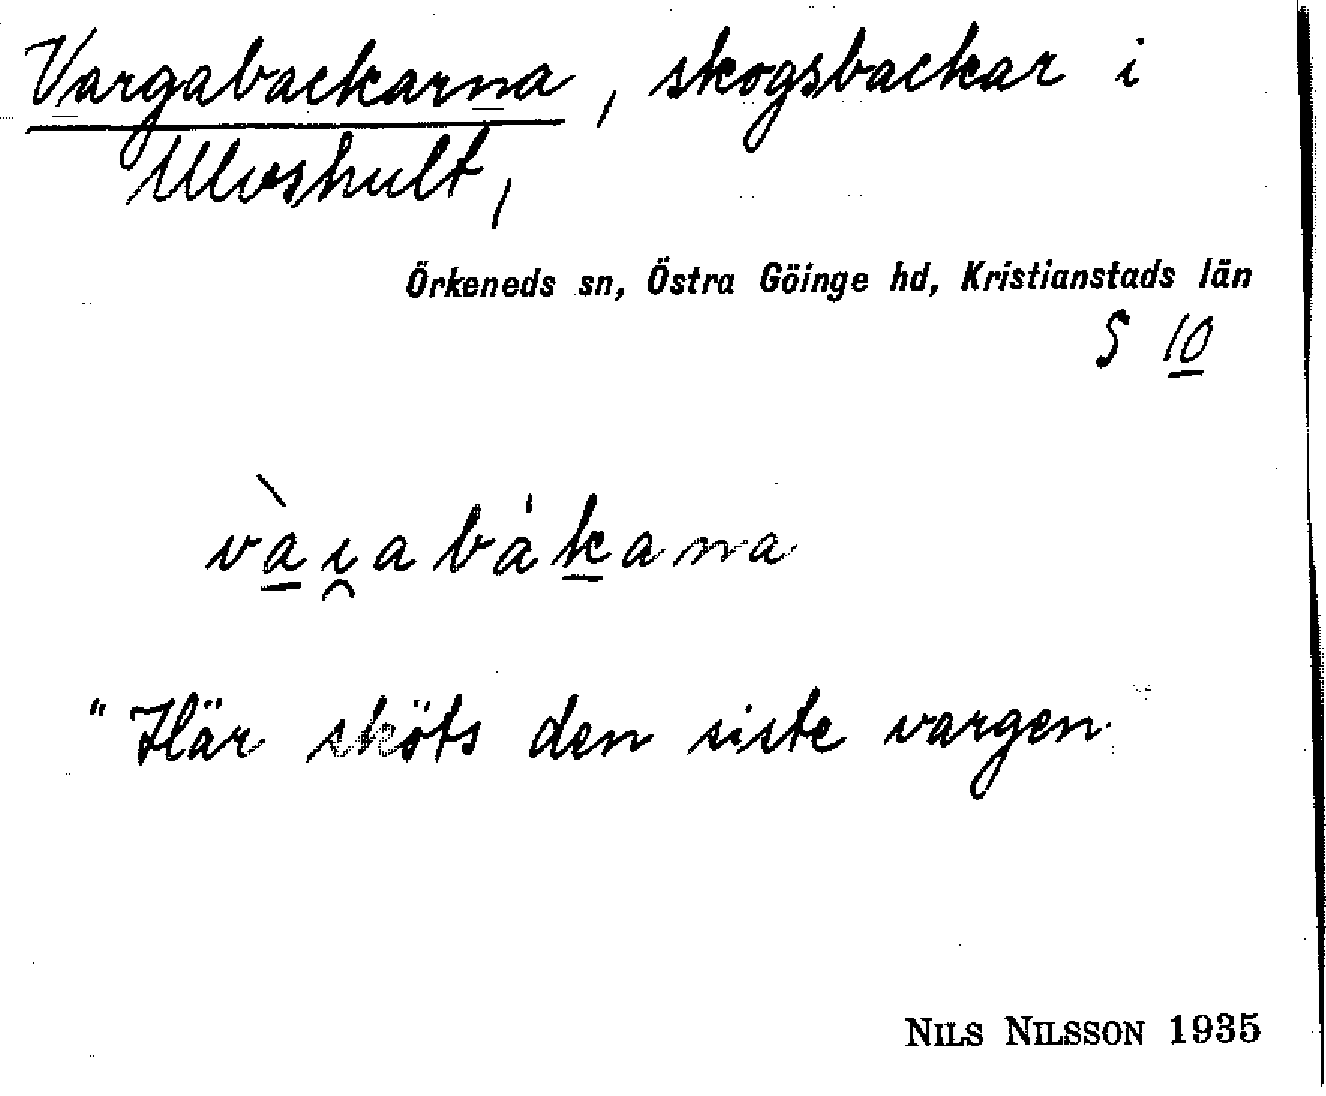 Vargabackarna, skogsbackar i
Ulvshult,
Örkeneds sn, Östra Göinge hd, Kristianstads län
S 10
"Här sköts den siste vargen
NILS NILSSON 1935